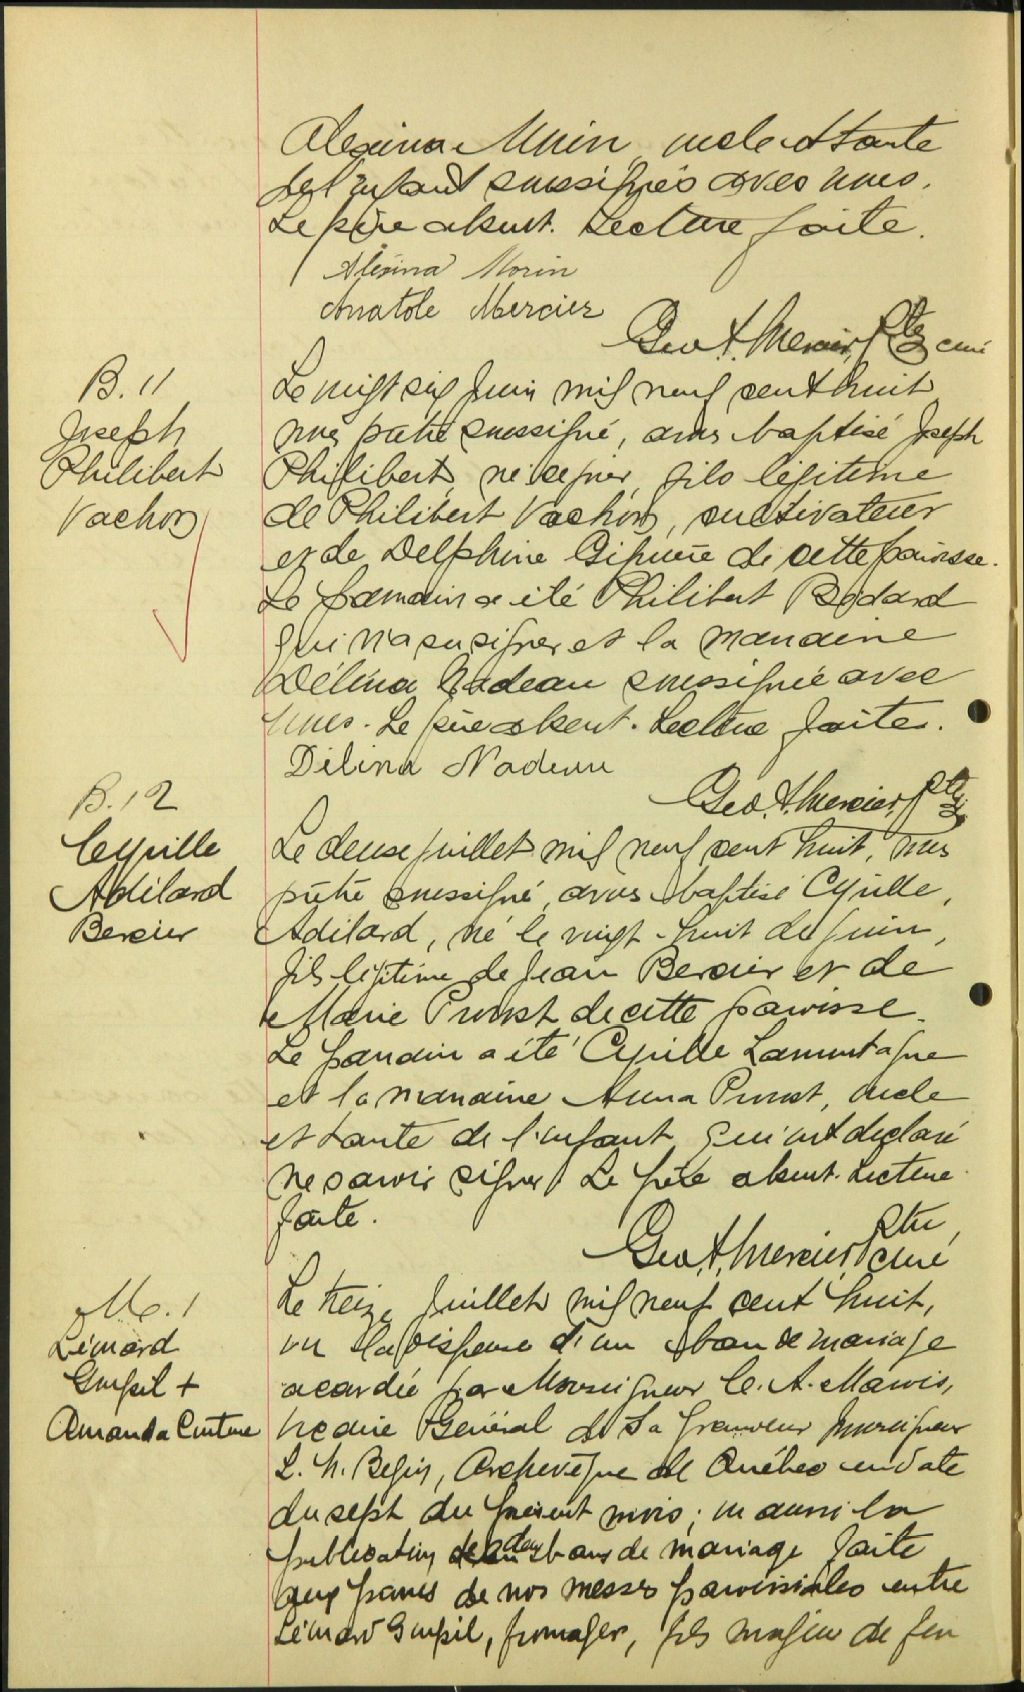 Alexina Morin, oncle et tante
de l'enfant soussignés avec nous.
Le père absent. Lecture faite.
Alexina Morin
Anatole Mercier
Geo. A. Mercier, Ptre curé
B. 11
Joseph
Philibert
Vachon
Le vingt six Juin mil neuf cent huit
nous prêtre soussigné, avons baptisé Joseph
Philibert, né ce jour, fils légitime
de Philibert Vachon, cultivateur
et de Delphine Giguère de cette paroisse.
Le parrain a été Philibert Bédard
qui n'a su signer et la marraine
Délina Nadeau soussignée avec
nous. Le père absent. Lecture faite.
Délina Nadeau
Geo. A. Mercier, Ptre
B. 12
Cyrille
Adélard
Bercier
Le deux juillet mil neuf cent huit, nous
prêtre soussigné, avons baptisé Cyrille,
Adélard, né le vingt-huit de juin,
fils légitime de Jean Bercier et de
Marie Proust de cette paroisse.
Le parrain a été Cyrille Lamontagne
et la marraine Anna Proust, oncle
et tante de l'enfant qui ont déclaré
ne savoir signer. Le père absent. Lecture
faite.
Geo. A. Mercier, Ptre, curé
M. 1
Léonard
Goupil +
Amanda Couture
Le treize Juillet mil neuf cent huit,
vu la dispense d'un ban de mariage
accordée par Monseigneur C. A. Marois,
Vicaire Général de Sa Grandeur Monseigneur
L. N. Bégin, Archevêque de Québec en date
du sept du présent mois; vu aussi la
publication de deux bans de mariage faite
aux prônes de nos messes paroissiales entre
Léonard Goupil, fromager, fils majeur de feu